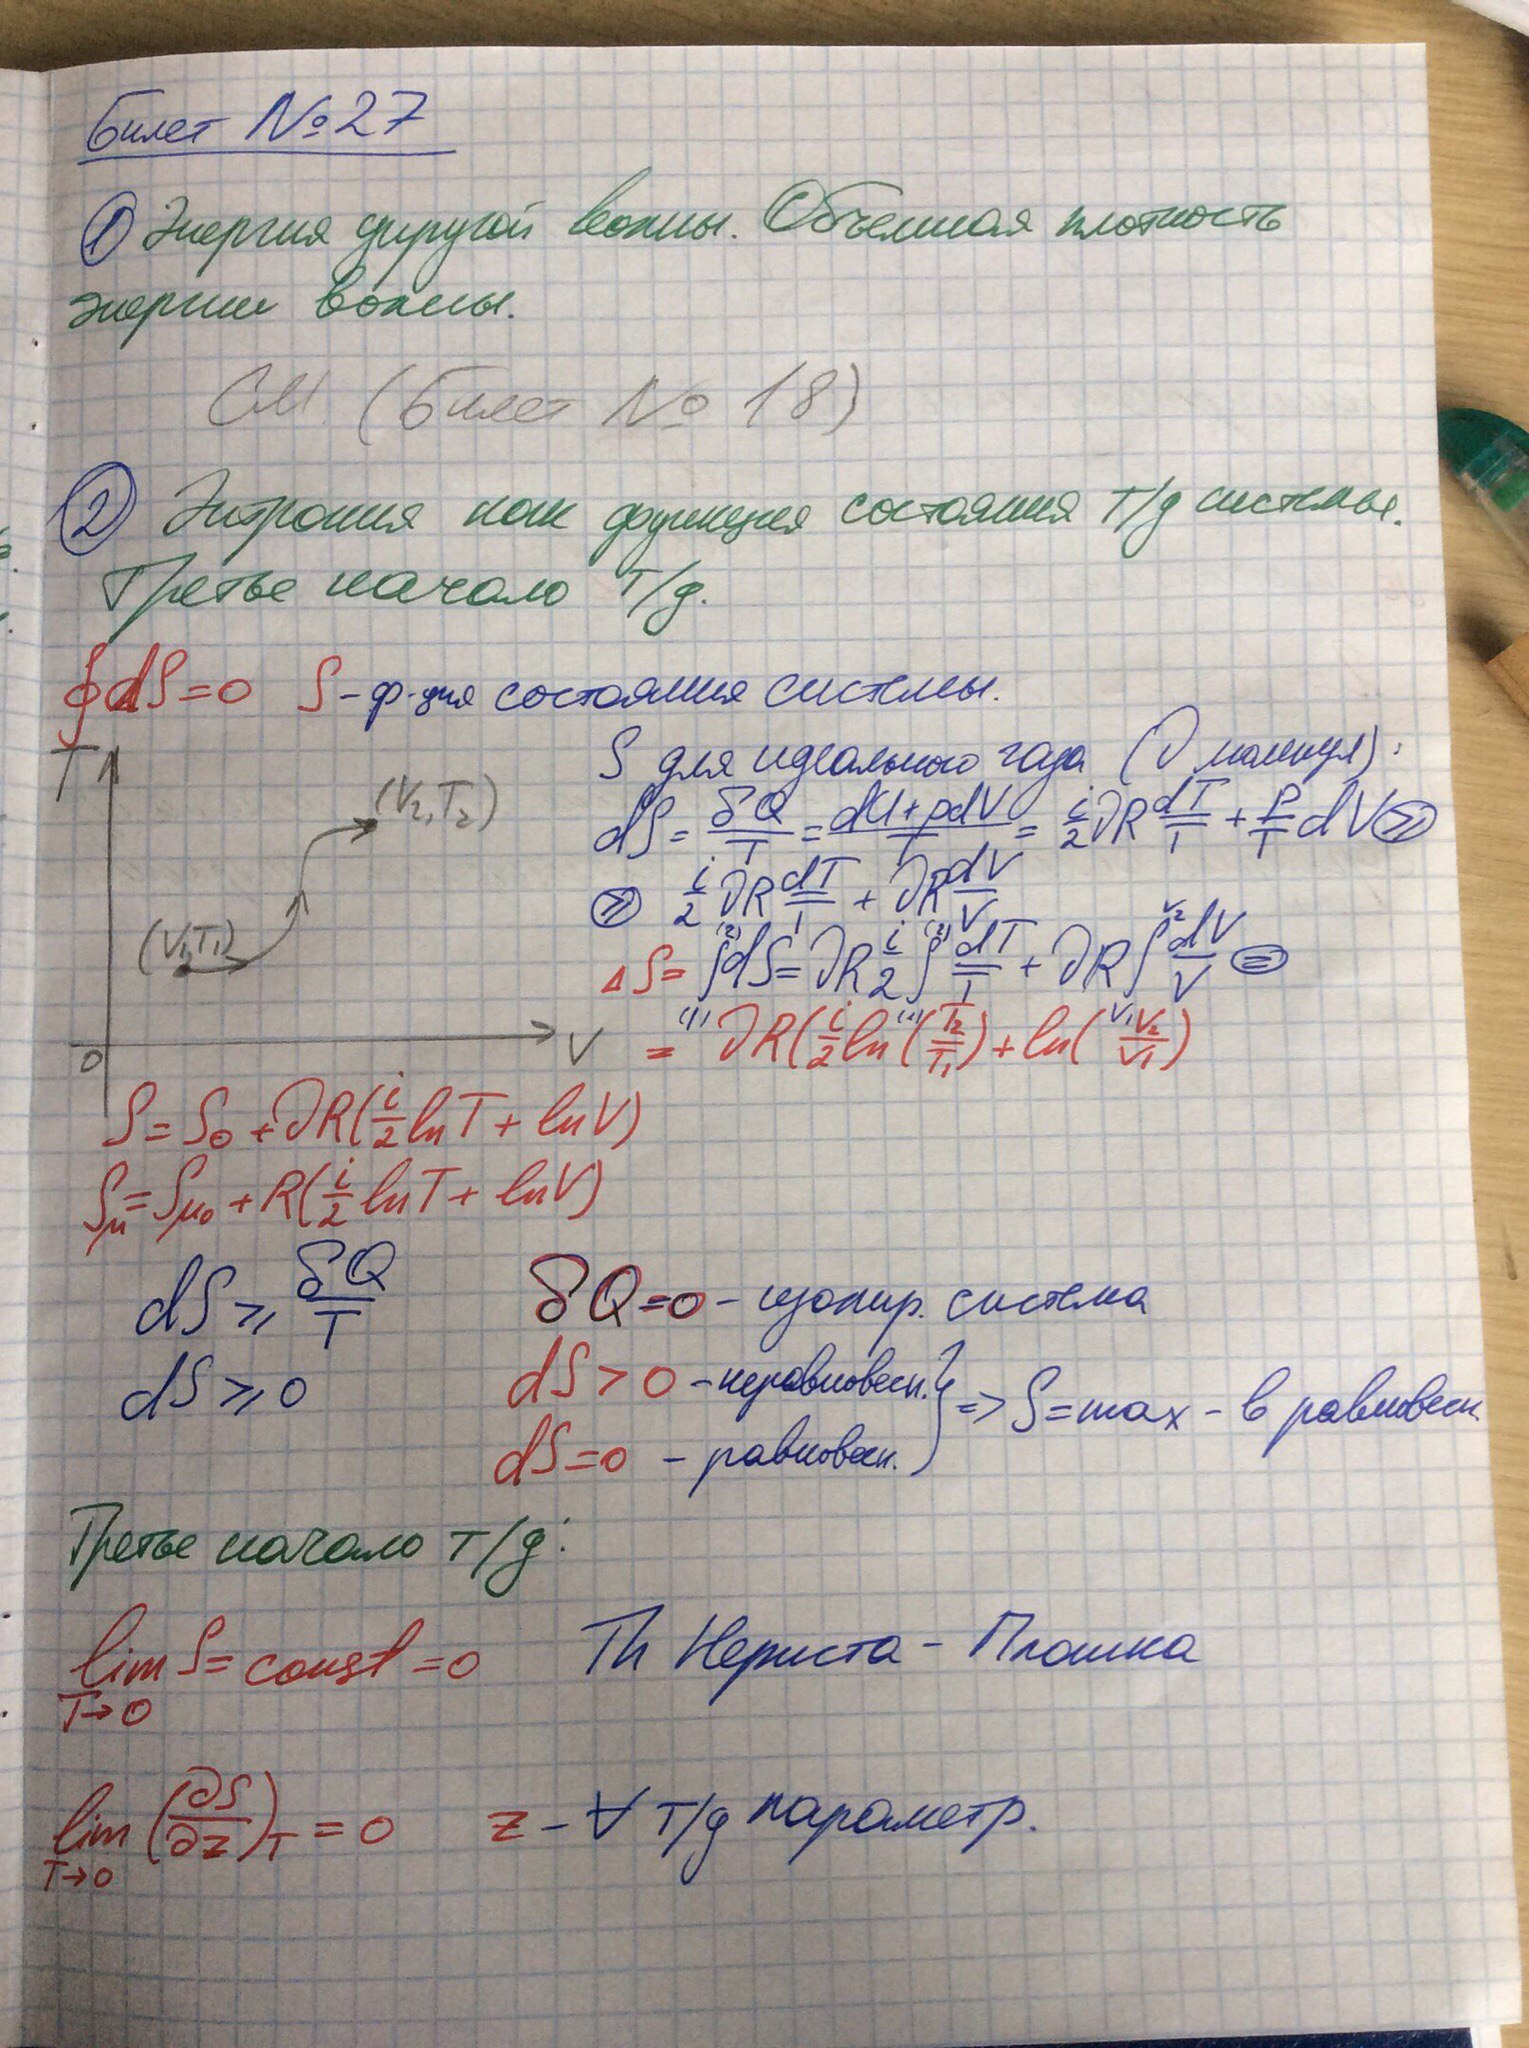 Билет №27
① Энергия упругой волны. Объемная плотность
энергии волны.
См. (Билет № 18)
② Энтропия как функция состояния т/д системы.
Третье начало т/д.
∮dS=0 S - ф-ция состояния системы.
T
(V₂,T₂)
(V₁,T₁)
0
V
S для идеального газа (ν молекул):
dS = δQ/T = (dU+pdV)/T = i/2 νR dT/T + P/T dV ⊜
⊜ i/2 νR dT/T + νR dV/V
ΔS = ∫₍₁₎⁽²⁾ dS = νR i/2 ∫₍₁₎⁽²⁾ dT/T + νR ∫_V₁^V₂ dV/V ⊜
= νR(i/2 ln(T₂/T₁) + ln(V₂/V₁))
S = S₀ + νR(i/2 lnT + lnV)
Sμ = Sμ₀ + R(i/2 lnT + lnV)
dS ≥ δQ/T
dS ≥ 0
δQ=0 - изолир. система
dS > 0 - неравновесн.
dS = 0 - равновесн.
} => S=max - в равновесн.
Третье начало т/д:
lim S = const = 0
T→0
Th Нернста - Планка
lim (∂S/∂z)_T = 0
T→0
z - ∀ т/д параметр.